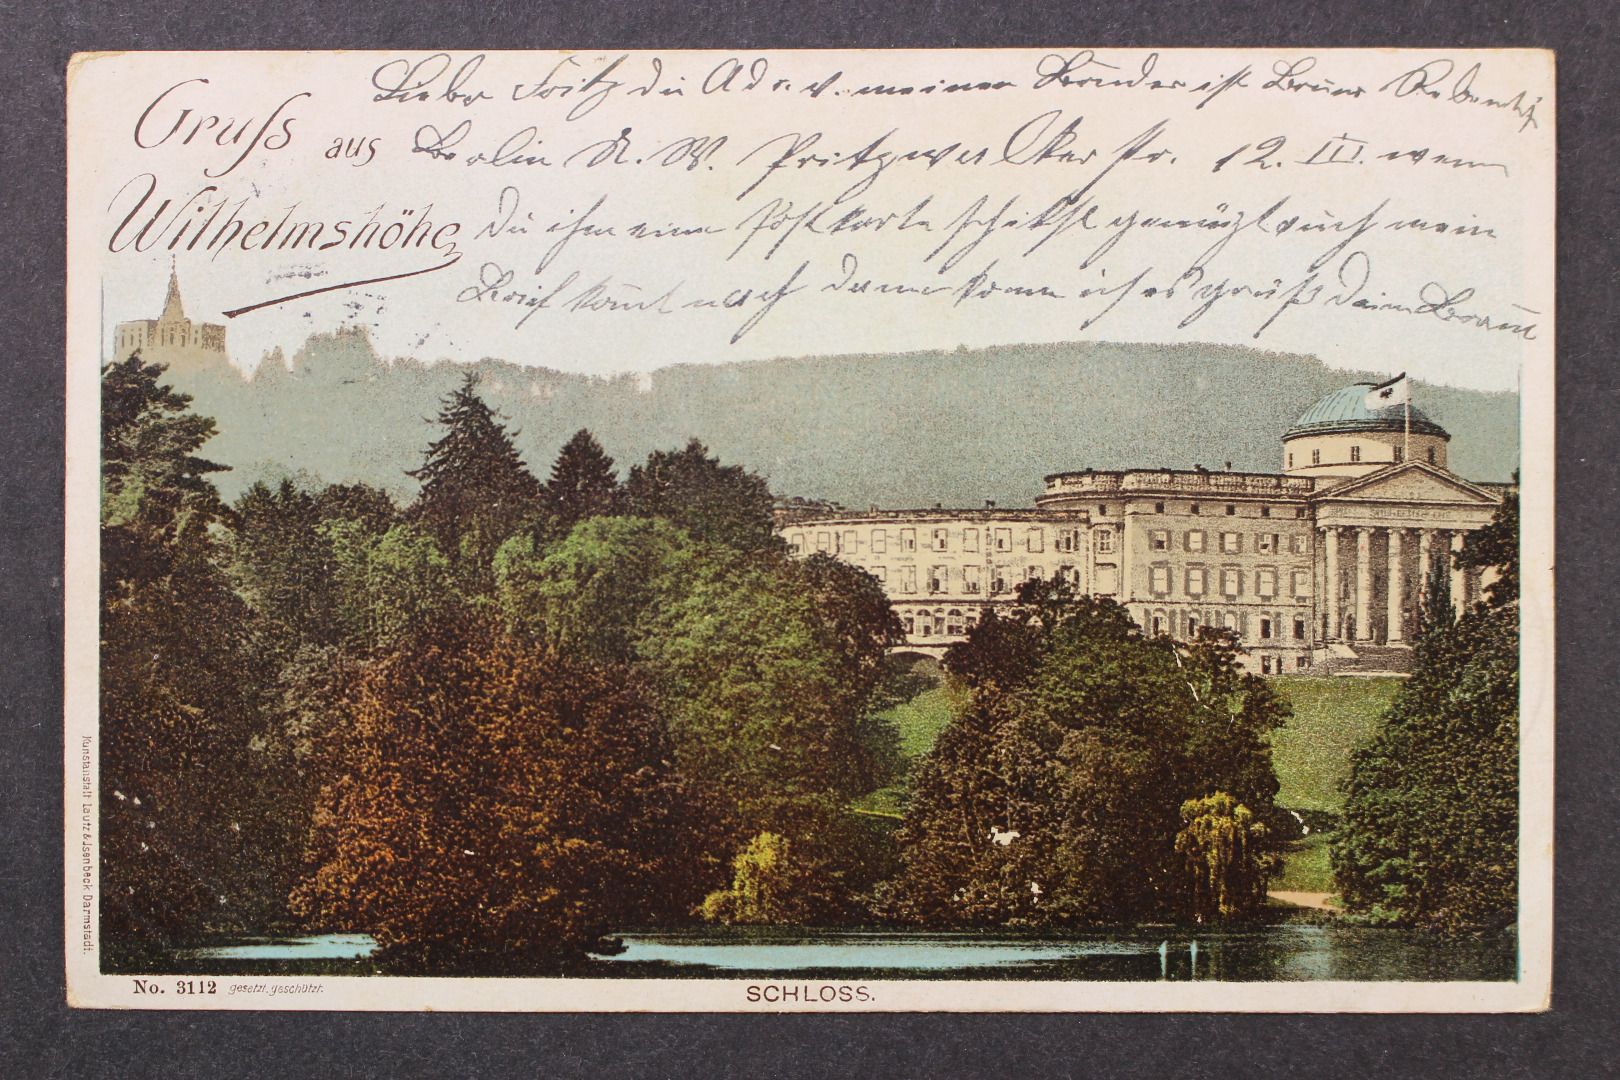 Gruss aus
Wilhelmshöhe
Lieber Fritz du Adr. v. meinen Bruder ist Bruno
Berlin N. W. Pritzwalker str. 12. III. wenn
Du ihm eine Postkarte schikst genügt auch mein
Brief komt nach dann komm ich es grüßt Dein
Kunstanstalt Lautz & Jsenbeck Darmstadt.
No. 3112 gesetzl. geschützt.
SCHLOSS.